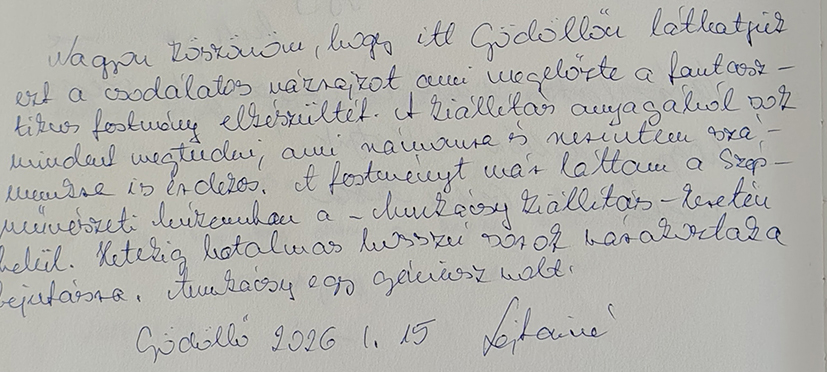 Nagyon köszönöm, hogy itt Gödöllőn láthatjuk
ezt a csodálatos vázrajzot ami megelőzte a fantasz-
tikus festmény elkészültét. A kiállítás anyagából sok
mindent megtudni, ami számomra is szerintem szá-
momra is érdekes. A festményt már láttam a Szép-
művészeti Múzeumban a - Munkácsy kiállítás - keretén
belül. Hetekig hatalmas hosszú sorok várakoztak a
bejutásra. Munkácsy egy géniusz volt.
Gödöllő 2026 1. 15